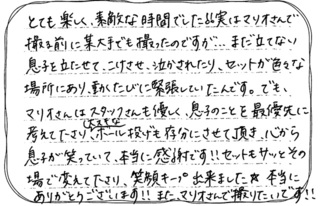 とても楽しく、素敵な時間でした!!実はマリオさんで
撮る前に某大手でも撮ったのですが…まだ立てない
息子を立たせて、こけさせ、泣かされたり、セットが色々な
場所にあり、動くたびに緊張していたんです。でも、
マリオさんはスタッフさんも優しく、息子のことを最優先に
考えて下さり、大好きなボール投げも存分にさせて頂き、心から
息子が笑っていて、本当に感謝です!!セットもサッとその
場で変えて下さり、笑顔キープ出来ました☆本当に
ありがとうございます!!また、マリオさんで撮りたいです!!